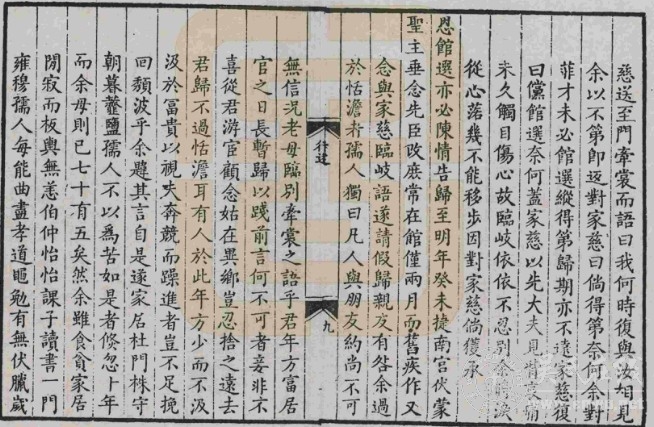 慈送至門牽裳而語曰我何時復與汝相見
余以不第即返對家慈曰倘得第奈何余對
菲才未必館選縱得第歸期亦不遠家慈復
曰儻館選奈何蓋家慈以先大夫見背哀痛
未久觸目傷心故臨岐依依不忍別余時淚
從心落幾不能移步因對家慈倘獲承
恩館選亦必陳情告歸至明年癸未捷南宮伏蒙
聖主垂念先臣改庶常在館僅兩月而舊疾作又
念與家慈臨岐語遂請假歸親友有咎余過
於恬澹者孺人獨曰凡人與朋友約尚不可
行述
九
無信況老母臨別牽裳之語乎君年方富居
官之日長暫歸以踐前言何不可者妾非不
喜從君游宦顧念姑在異鄉豈忍捨之遠去
君歸不過恬澹耳有人於此年方少而不汲
汲於富貴以視夫奔競而躁進者豈不足挽
回頹波乎余韙其言自是遂家居杜門株守
朝暮虀鹽孺人不以為苦如是者倏忽十年
而余母則已七十有五矣然余雖食貧家居
閴寂而板輿無恙伯仲怡怡課子讀書一門
雍穆孺人每能曲盡孝道黽勉有無伏臘歲